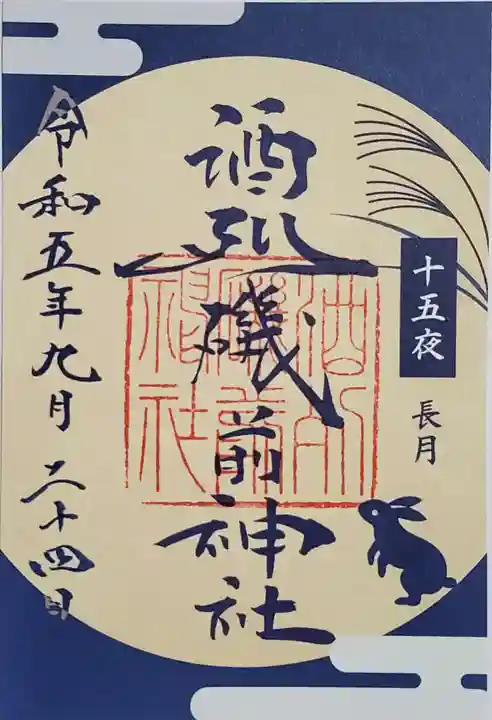 十五夜
長月
酒列磯前神社
酒列
磯前
神社
令和五年九月二十四日